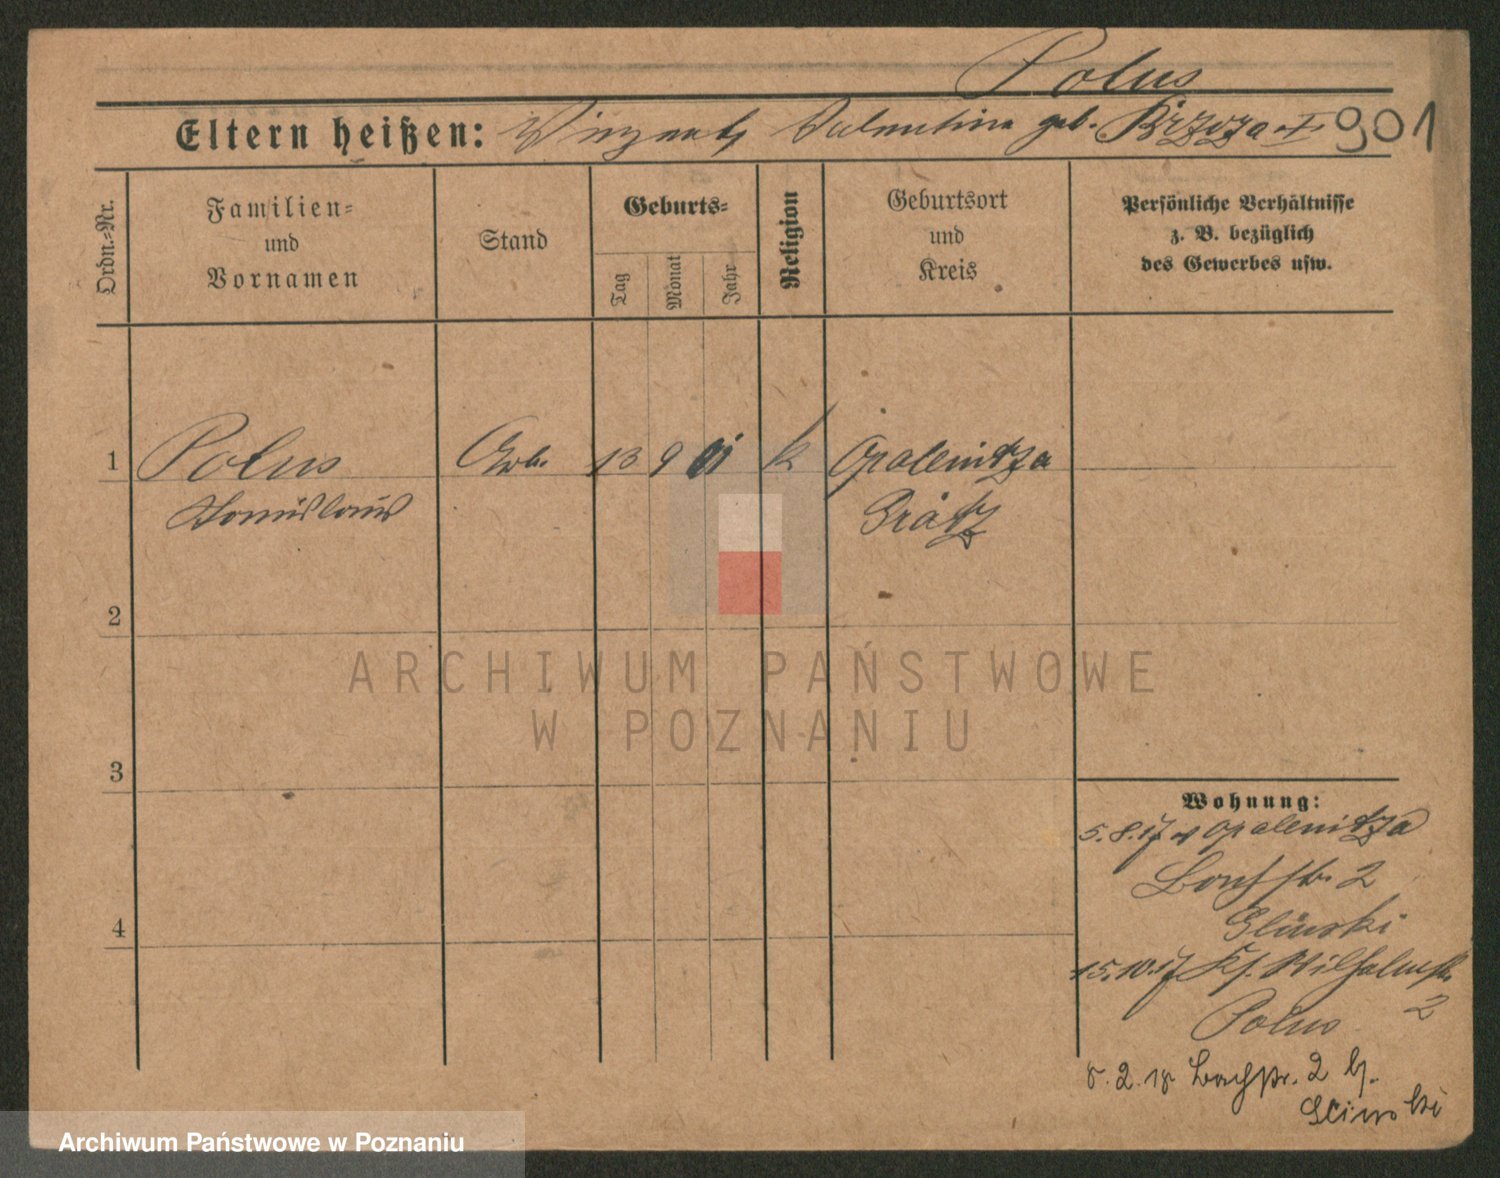 Polus
Eltern heißen: Vinzent Valentine geb. Brzoza
901
Ordn.=Nr.
Familien=
und
Vornamen
Stand
Geburts=
Tag
Monat
Jahr
Religion
Geburtsort
und
Kreis
Persönliche Verhältnisse
z. B. bezüglich
des Gewerbes usw.
1 Polus Arb. 13 9 01 k Opalenitza
Stanislaus Grätz
2
ARCHIWUM PAŃSTWOWE
W POZNANIU
3
Wohnung:
5.8.17 v Opalenitza
2
Glinski
4
15.10.17 Wilhelmstr.
2
Polus
8.2.18 Bachstr. 2 b.
Glinski
Archiwum Państwowe w Poznaniu